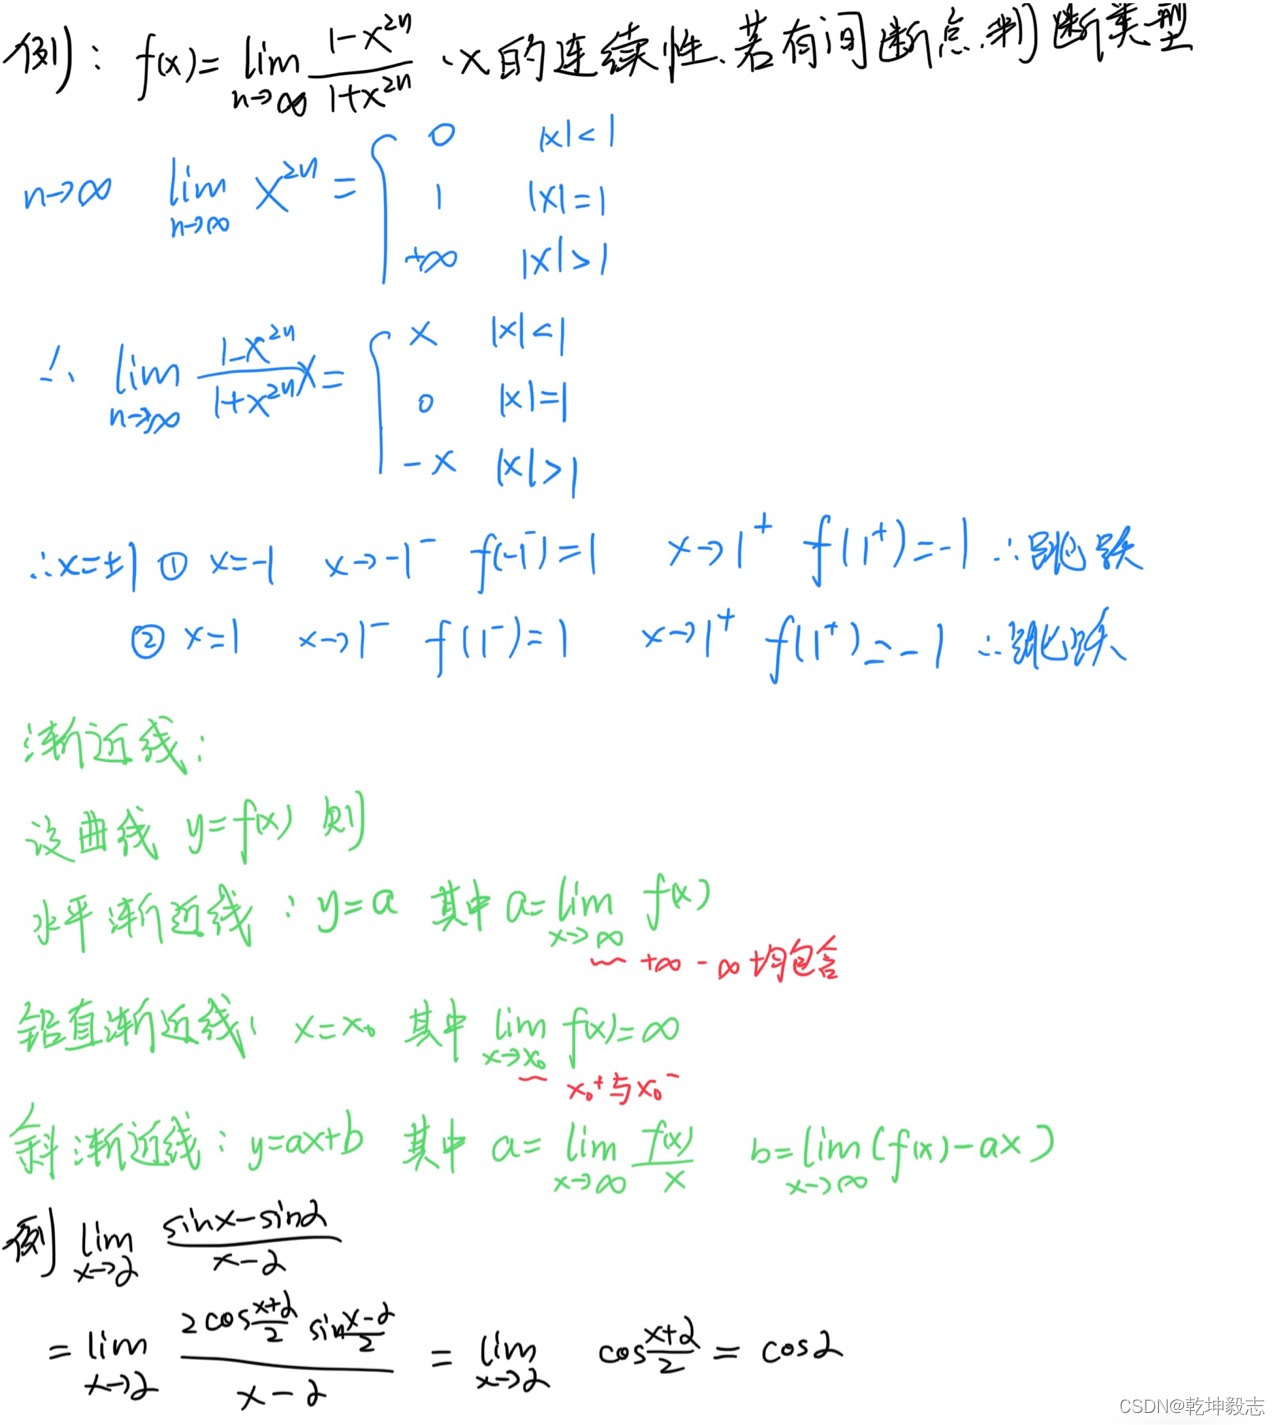 例: f(x)=lim n→∞ (1-x^{2n})/(1+x^{2n}) ·x的连续性.若有间断点.判断类型
n→∞ lim n→∞ x^{2n} = { 0 |x|<1
1 |x|=1
+∞ |x|>1
∴ lim n→∞ (1-x^{2n})/(1+x^{2n}) x = { x |x|<1
0 |x|=1
-x |x|>1
∴x=±1 ① x=-1 x→-1⁻ f(-1⁻)=1 x→1⁺ f(1⁺)=-1 ∴跳跃
② x=1 x→1⁻ f(1⁻)=1 x→1⁺ f(1⁺)=-1 ∴跳跃
渐近线:
设曲线 y=f(x) 则
水平渐近线: y=a 其中 a=lim x→∞ f(x)
+∞ -∞ 均包含
铅直渐近线: x=x₀ 其中 lim x→x₀ f(x)=∞
x₀⁺与x₀⁻
斜渐近线: y=ax+b 其中 a=lim x→∞ f(x)/x b=lim x→∞ (f(x)-ax)
例 lim x→α (sinx-sinα)/(x-α)
= lim x→α (2cos (x+α)/2 sin (x-α)/2)/(x-α) = lim x→α cos (x+α)/2 = cosα
CSDN@乾坤毅志